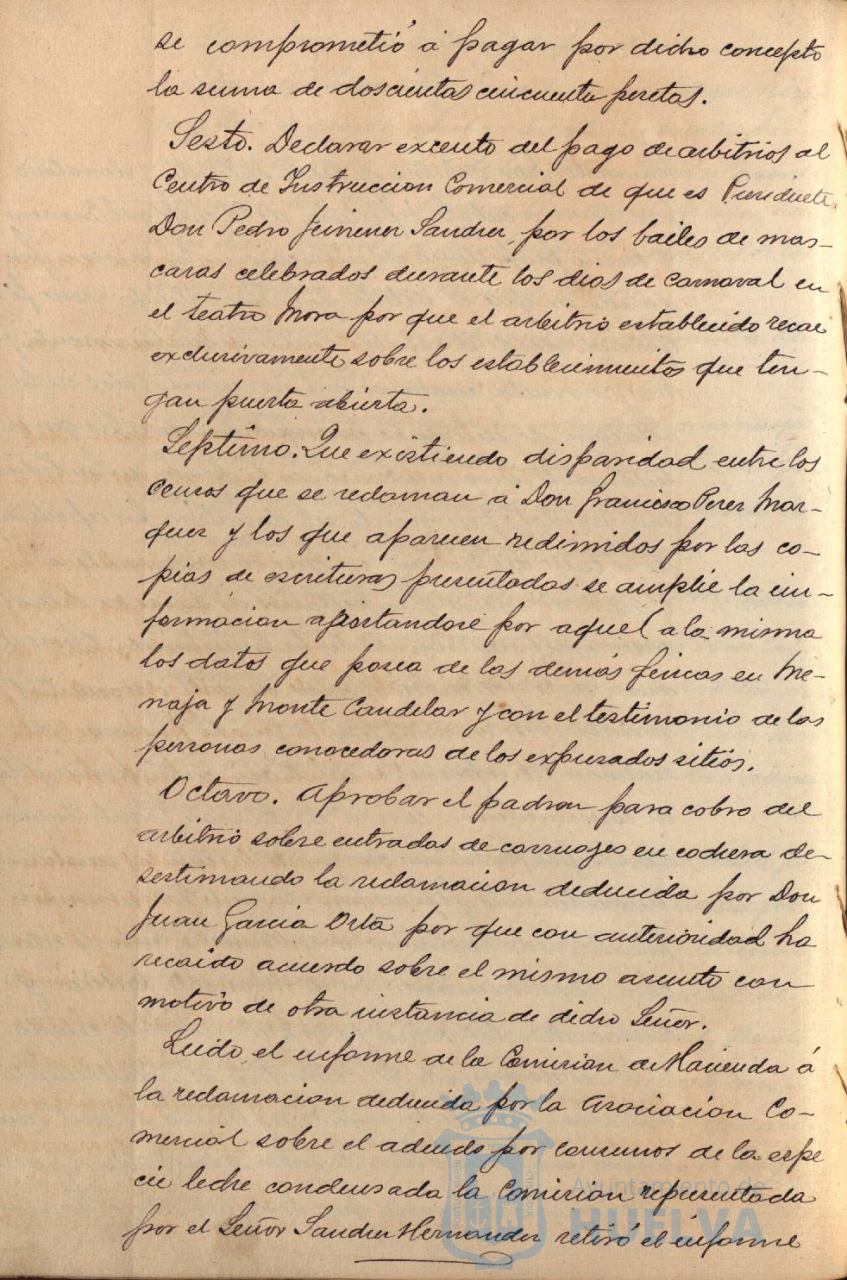 se comprometió a pagar por dicho concepto
la suma de doscientas cincuenta pesetas.
Sesto. Declarar excento del pago de arbitrios al
Centro de Instruccion Comercial de que es Presidente
Don Pedro Jimenez Sanchez, por los bailes de mas-
caras celebrados durante los dias de carnaval en
el teatro Mora por que el arbitrio establecido recae
exclusivamente sobre los establecimientos que ten-
gan puerta abierta.
Septimo. Que existiendo disparidad entre los
censos que se reclaman á Don Francisco Perez Mar-
quez y los que aparecen redimidos por las co-
pias de escrituras presentadas se amplie la in-
formacion aportandose por aquel a la misma
los datos que posea de las demás fincas en Me-
naja y Monte Candelar y con el testimonio de las
personas conocedoras de los expresados sitios.
Octavo. Aprobar el padron para cobro del
arbitrio sobre entradas de carruajes en cochera de-
sestimando la reclamacion deducida por Don
Juan Garcia Orta por que con anterioridad ha
recaido acuerdo sobre el mismo asunto con
motivo de otra instancia de dicho Señor.
Leido el informe de la Comision de Hacienda á
la reclamacion deducida por la Asociacion Co-
mercial sobre el adeudo por consumos de la espe
cie leche condensada la Comision representada
por el Señor Sanchez Hernandez retiró el informe
Ayuntamiento de
HUELVA